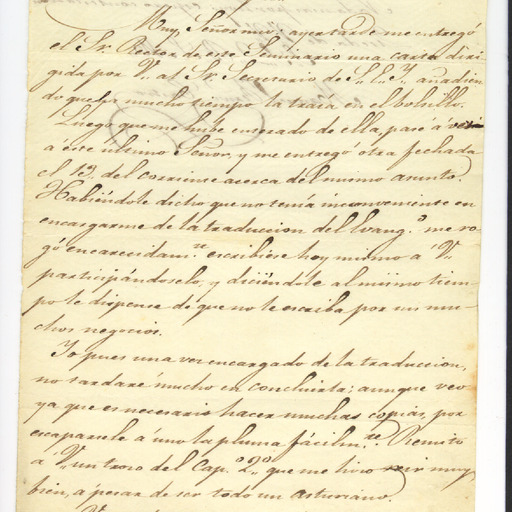 Muy Señor mio: ayer tarde me entregó
el Sr. Rector de este Seminario una carta diri
gida por V. al Sr. Secretario de S. E. Y. añadien
do que há mucho tiempo la traia en el bolsillo.
Luego que me hube enterado de ella, pasé á ver
a este último Señor, y me entregó otra fechada
el 13. del corriente acerca del mismo asunto.
Habiéndole dicho que no tenia inconveniente en
encargarme de la traduccion del Evang.º me ro
gó encarecidam.te escribiese hoy mismo á V.
participándoselo, y diciéndole al mismo tiem
po le dispense de que no le escriba por sus mu
chos negocios.
Yo pues una vez encargado de la traduccion,
no tardaré mucho en concluirla: aunque veo
ya que es necesario hacer muchas copias, por
escapársele á uno la pluma fácilm.te Remito
á V. un trozo del Cap.º 2.º que me hizo reir muy
bien, á pesar de ser todo un asturiano.